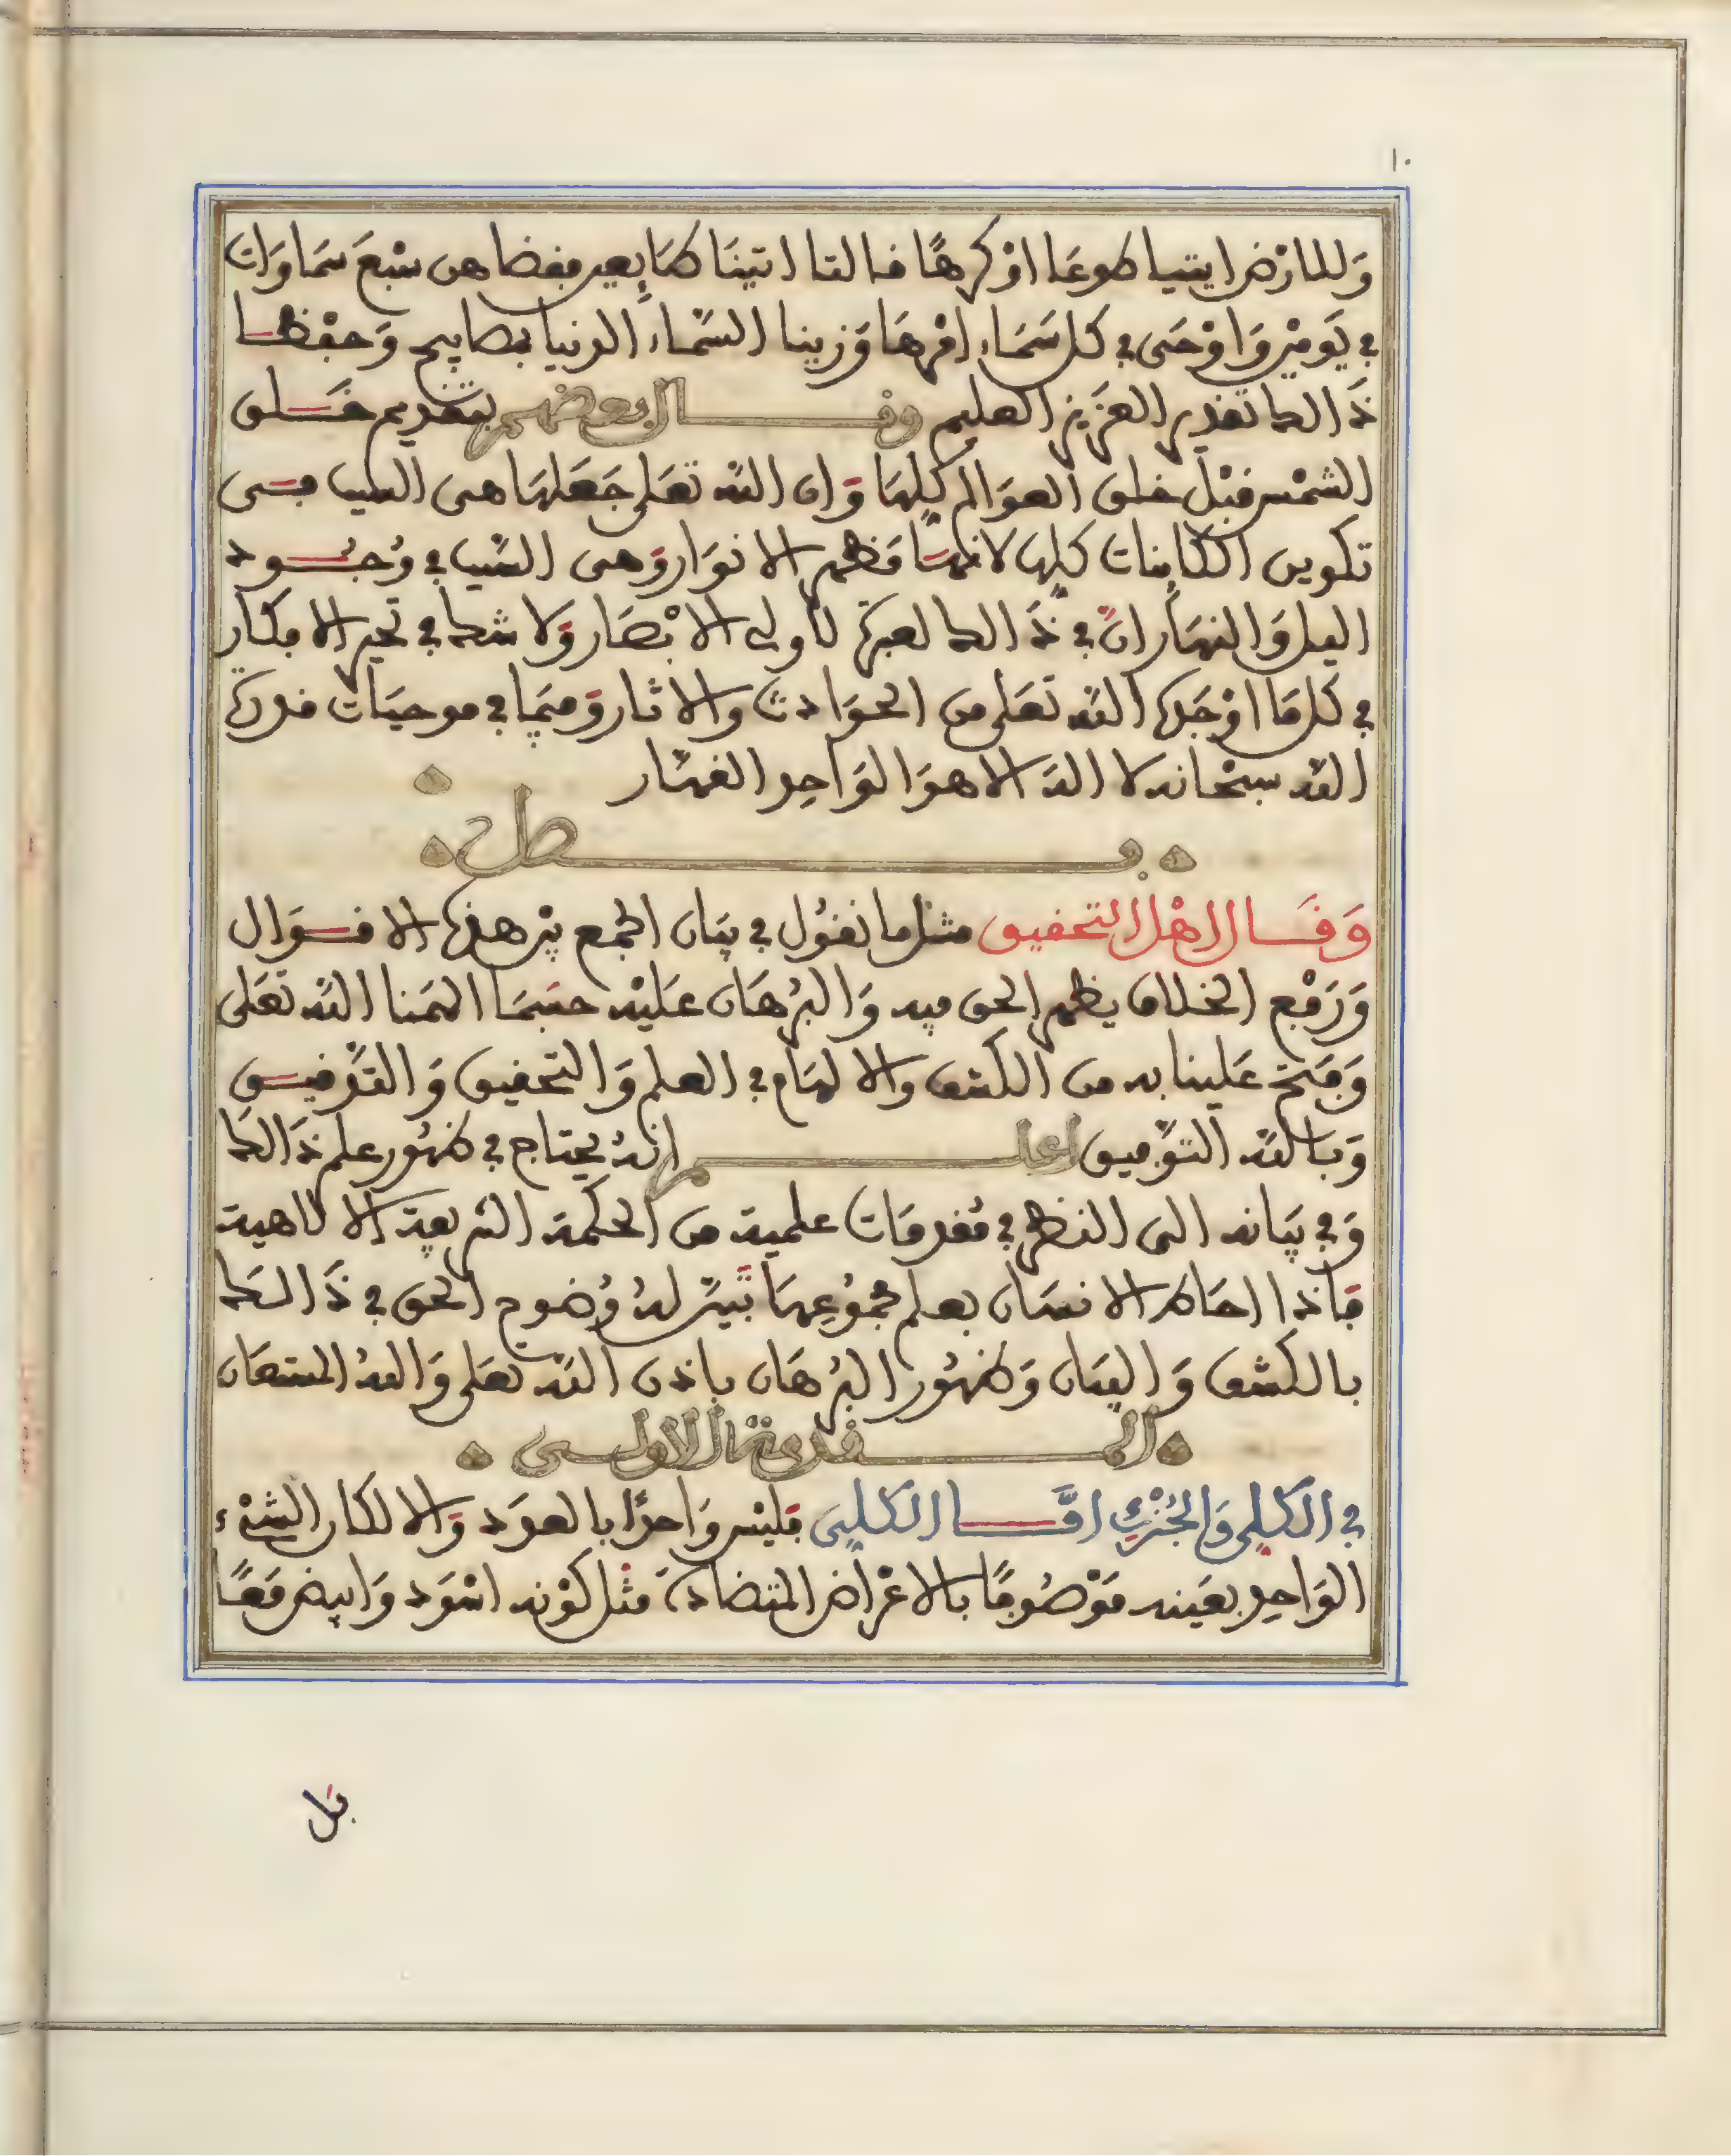 ١٠
وَللارْض ايتيا طوعَا اوْ كرهًا قالتا اتينَا طَايِعين فقضاهن سَبْعَ سَمَاوَات
في يَوميْن وَاوْحَى في كل سَمَاء امْرهَا وَزينا السّمَاء الدنيا بمصابيح وَحفْظا
ذَالك تقدير العَزيز العليم وقال بعضهم بتقديم خَلق
الشمْس قبْل خلق العوَالم كلهَا وَان الله تعَلى جَعَلهَا هى السبب في
تكوين الكاينات كلها لانهَا مَظهر الانوَار وَهى السّبب في وُجُود
اليل وَالنهَار انّ في ذَالك لعبرة لاولى الابْصَار وَلا شك في تحير الافكار
في كل مَا اوْجَده الله تعَلى من الحوَادث والاثار وَفيمَا في موجبَات قدرة
الله سبْحَانه لا اله الا هوَ الوَاحِد القهّار
فصل
وَقَال اهْل التحقيق مثل ما نقُول في بيَان الجمع بيْن هذه الاقوَال
وَرَفع الخلاف يظهر الحق فيه وَالبُرهَان عَليْه حسَبمَا الهَمنا الله تعَلى
وَفتح عَلينا به من الكشف والالهَام في العلم وَالتحقيق وَالتّدقيق
وَبالله التوْفيق اعلم انهُ يحتاج في ظهُور علم ذَالك
وَفي بيَانه الى النظر في مُقدمَات علمية من الحكمة الشريفة الالاهية
فاذا احَاط الانسَان بعلم مجمُوعِهَا تَبيّن لهُ وُضوح الحق في ذَالك
بالكشف وَالبيَان وَظهُور البُرهَان باذن الله تعَلى وَاللهُ المستعَان
المقدمة الاولى
في الكلى وَالجُزْءى امَّا الكلى فليْس وَاحدًا بالعدَد وَالا لكان الشىْء
الوَاحِد بعَينه مَوْصُوفًا بالاعْرَاض المتضادة مثل كوْنه اسْوَد وَابيض مَعًا
بَل